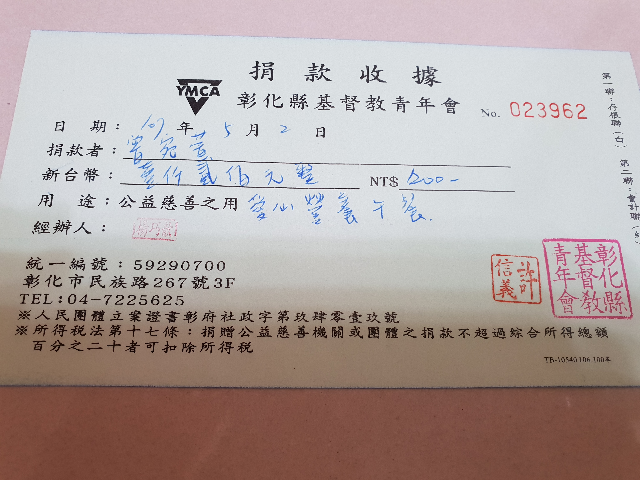 捐款收據
YMCA
彰化縣基督教青年會
No. 023962
日期：107年5月2日
捐款者：曾宛萱
新台幣：壹仟貳佰元整 NT$ 1200-
用途：公益慈善之用 愛心營養午餐
經辦人：
統一編號：59290700
彰化市民族路267號3F
TEL:04-7225625
※人民團體立案證書彰府社政字第玖肆零壹玖號
※所得稅法第十七條：捐贈公益慈善機關或團體之捐款不超過綜合所得總額
百分之二十者可扣除所得稅
許信義
彰化縣基督教青年會
第一聯：存根聯(白)、第二聯：會計聯